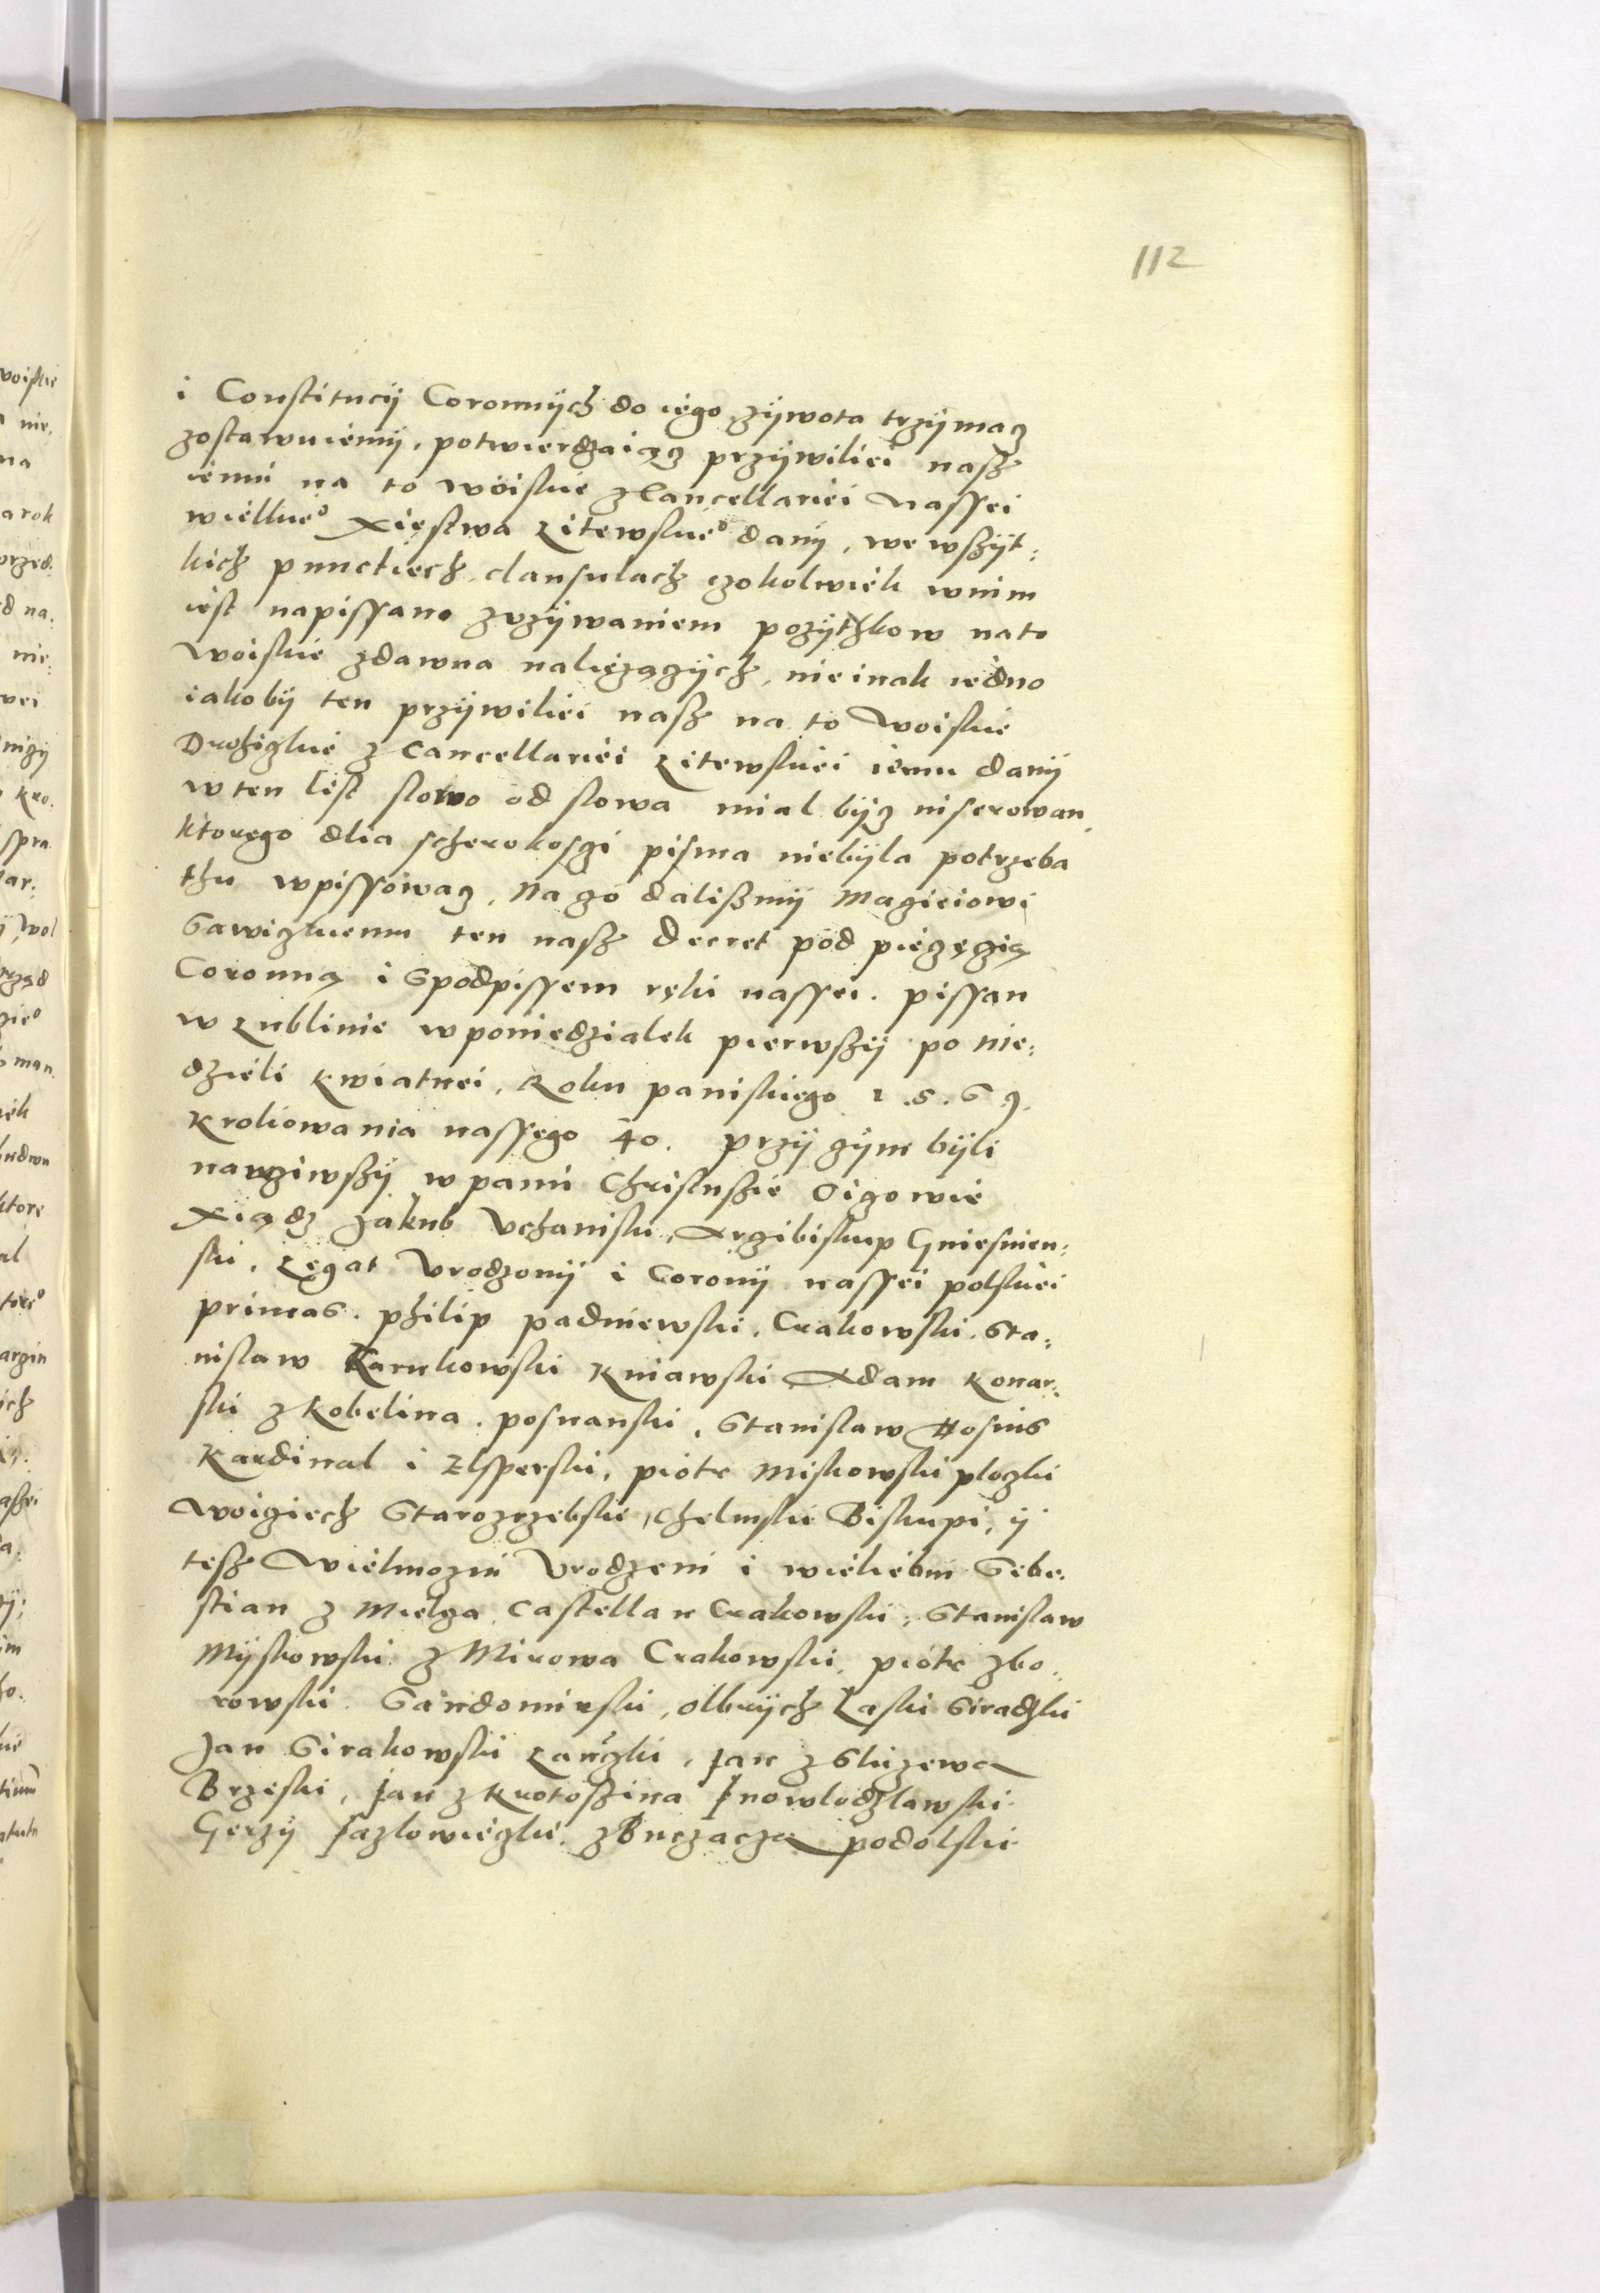 112
i Constitucÿ Coronnÿch do iego zÿwota trzÿmacz
zostawuiemÿ, potwierdzaiącz przÿwiliei nasz
iemu na to woiskie z Cancellariei nassei
wielkie° Xięstwa Litewskie° danÿ, we wszÿt:
kich punctiech, clausulach czokolwiek wnim
iest napissano zvzÿwaniem pozÿtkow nato
woiskie zdawna nalięzączÿch, nie inak iedno
iakobÿ ten przÿwiliei nasz na to woiskie
Drohiczkie z Cancellariei Litewskiei iemu danÿ
wten list slowo od slowa mial bÿcz inserowan,
ktorego dlia scherokosczi pisma niebÿla potrzeba
thu wpissowacz. Na czo dalismÿ Maciciowi
Sawiczkiemu ten nasz decret pod pieczęczią
Coronną i Spodpissem ręki nassei. pissan
w Lublinie w poniedzialek pierwszÿ po Nie:
dzieli kwiatnei, Roku paniskiego 1.5.6 9.
kroliowania nassego 40. przÿ czÿm bÿli
naucziwszÿ w panu Christuszie Oiczowie
Xiądz Jakub Vchaniski, Arczibiskup Gniesnien:
ski, Legat Vrodzonÿ i Coronÿ nassei polskiei
primas. philip padniewski, Crakowski. Sta:
nislaw Karnkowski Kuiawski, Adam Konar:
ski z Kobelina, posnanski, Stanislaw Hosius
Kardinal i Elsperski, piotr Miskowski ploczki
woiciech Starozrzebskie, Chelmskie Biskupi, ÿ
tesz wielmozni Vrodzeni i wieliebni Sebe:
stian z Mielcza Castellan Crakowski, Stanislaw
Mÿskowski z Mirowa Crakowski, piotr zbo:
rowski Sandomirski, Olbrÿch Laski Siradzki
Jan Sirakowski Lanczki, Jan z Sluzewa
Brzeski, Jan z Krotoszina Jnowlodzlawski
Gerzÿ Jazlowieczkie z Buczacza podolskie